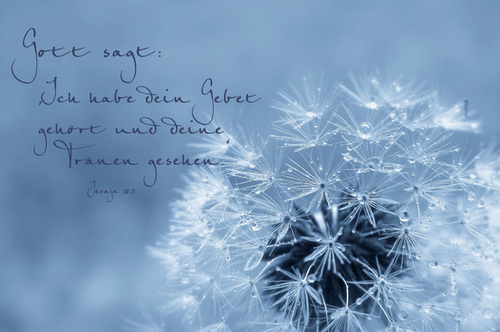 Gott sagt:
„Ich habe dein Gebet
gehört und deine
Tränen gesehen.“
Jesaja 38,5